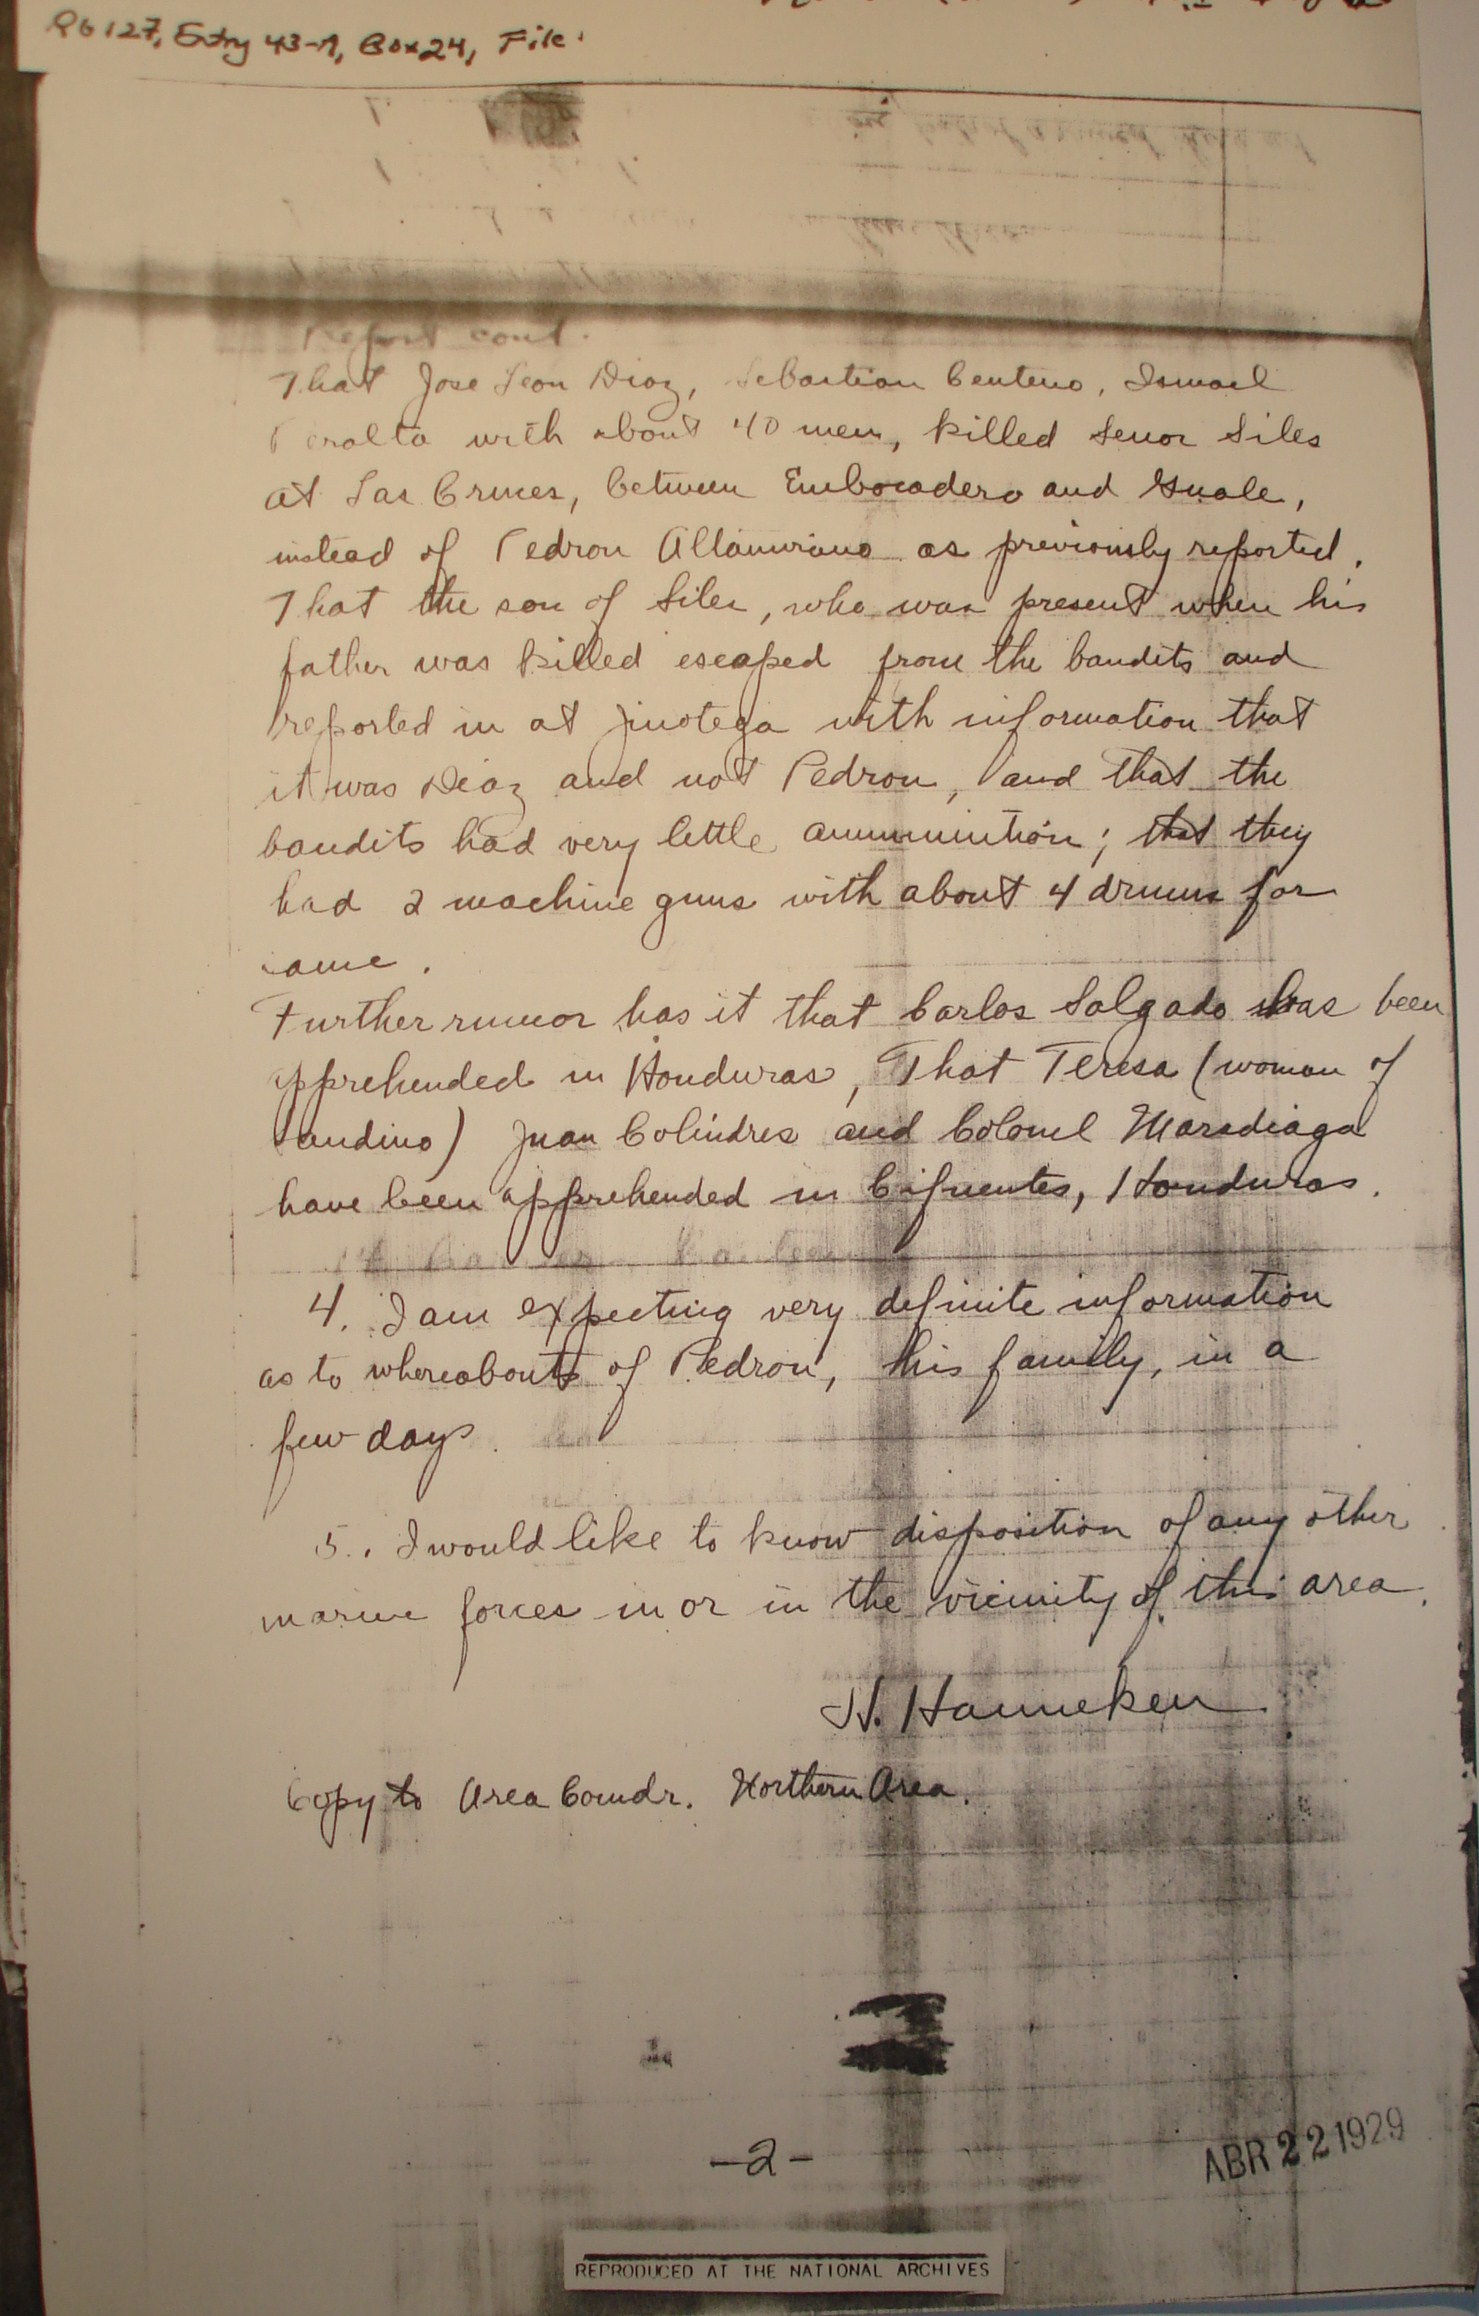 RG 127, Entry 43-A, Box 24, File:
Report cont.
That Jose Leon Diaz, Sebastian Centeno, Ismael
Peralta with about 40 men, killed Senor Siles
at Las Cruces, between Embocadero and Guale,
instead of Pedron Altamirano as previously reported.
That the son of Siles, who was present when his
father was killed escaped from the bandits and
reported in at Jinotega with information that
it was Diaz and not Pedron, and that the
bandits had very little ammunition; that they
had 2 machine guns with about 4 drums for
same.
Further rumor has it that Carlos Salgado has been
apprehended in Honduras, That Teresa (woman of
Sandino) Juan Colindres and Colonel Maradiaga
have been apprehended in Cifuentes, Honduras.
4. I am expecting very definite information
as to whereabouts of Pedron, his family, in a
few days.
5. I would like to know disposition of any other
marine forces in or in the vicinity of this area.
H. Hanneken
Copy to Area Comdr. Northern Area.
-2-
ABR 22 1929
REPRODUCED AT THE NATIONAL ARCHIVES